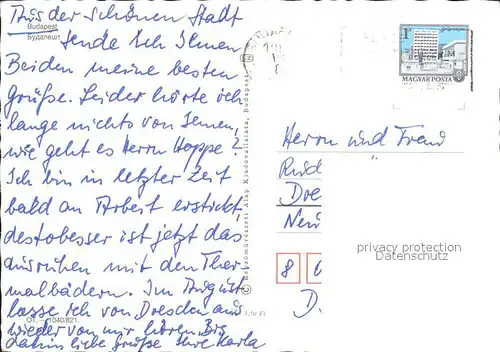 Aus der schönen Stadt
Budapest
Будапешт
sende ich Ihnen
Beiden meine besten
Grüße. Leider hörte ich
lange nichts von Ihnen,
wie geht es Herrn Hoppe?
Ich bin in letzter Zeit
bald an Arbeit erstickt
destobesser ist jetzt das
ausruhen mit den Ther
malbädern. Im August
lasse ich von Dresden aus
wieder von mir hören. Bis
OT.— 1040/821.
dahin liebe Grüße Ihre Karla
© Képzőművészeti Alap Kiadóvállalata, Budapest
1Ft
MAGYAR POSTA
Herrn und Frau
Rud
Dre
Neu
privacy protection
Datenschutz
8
D.